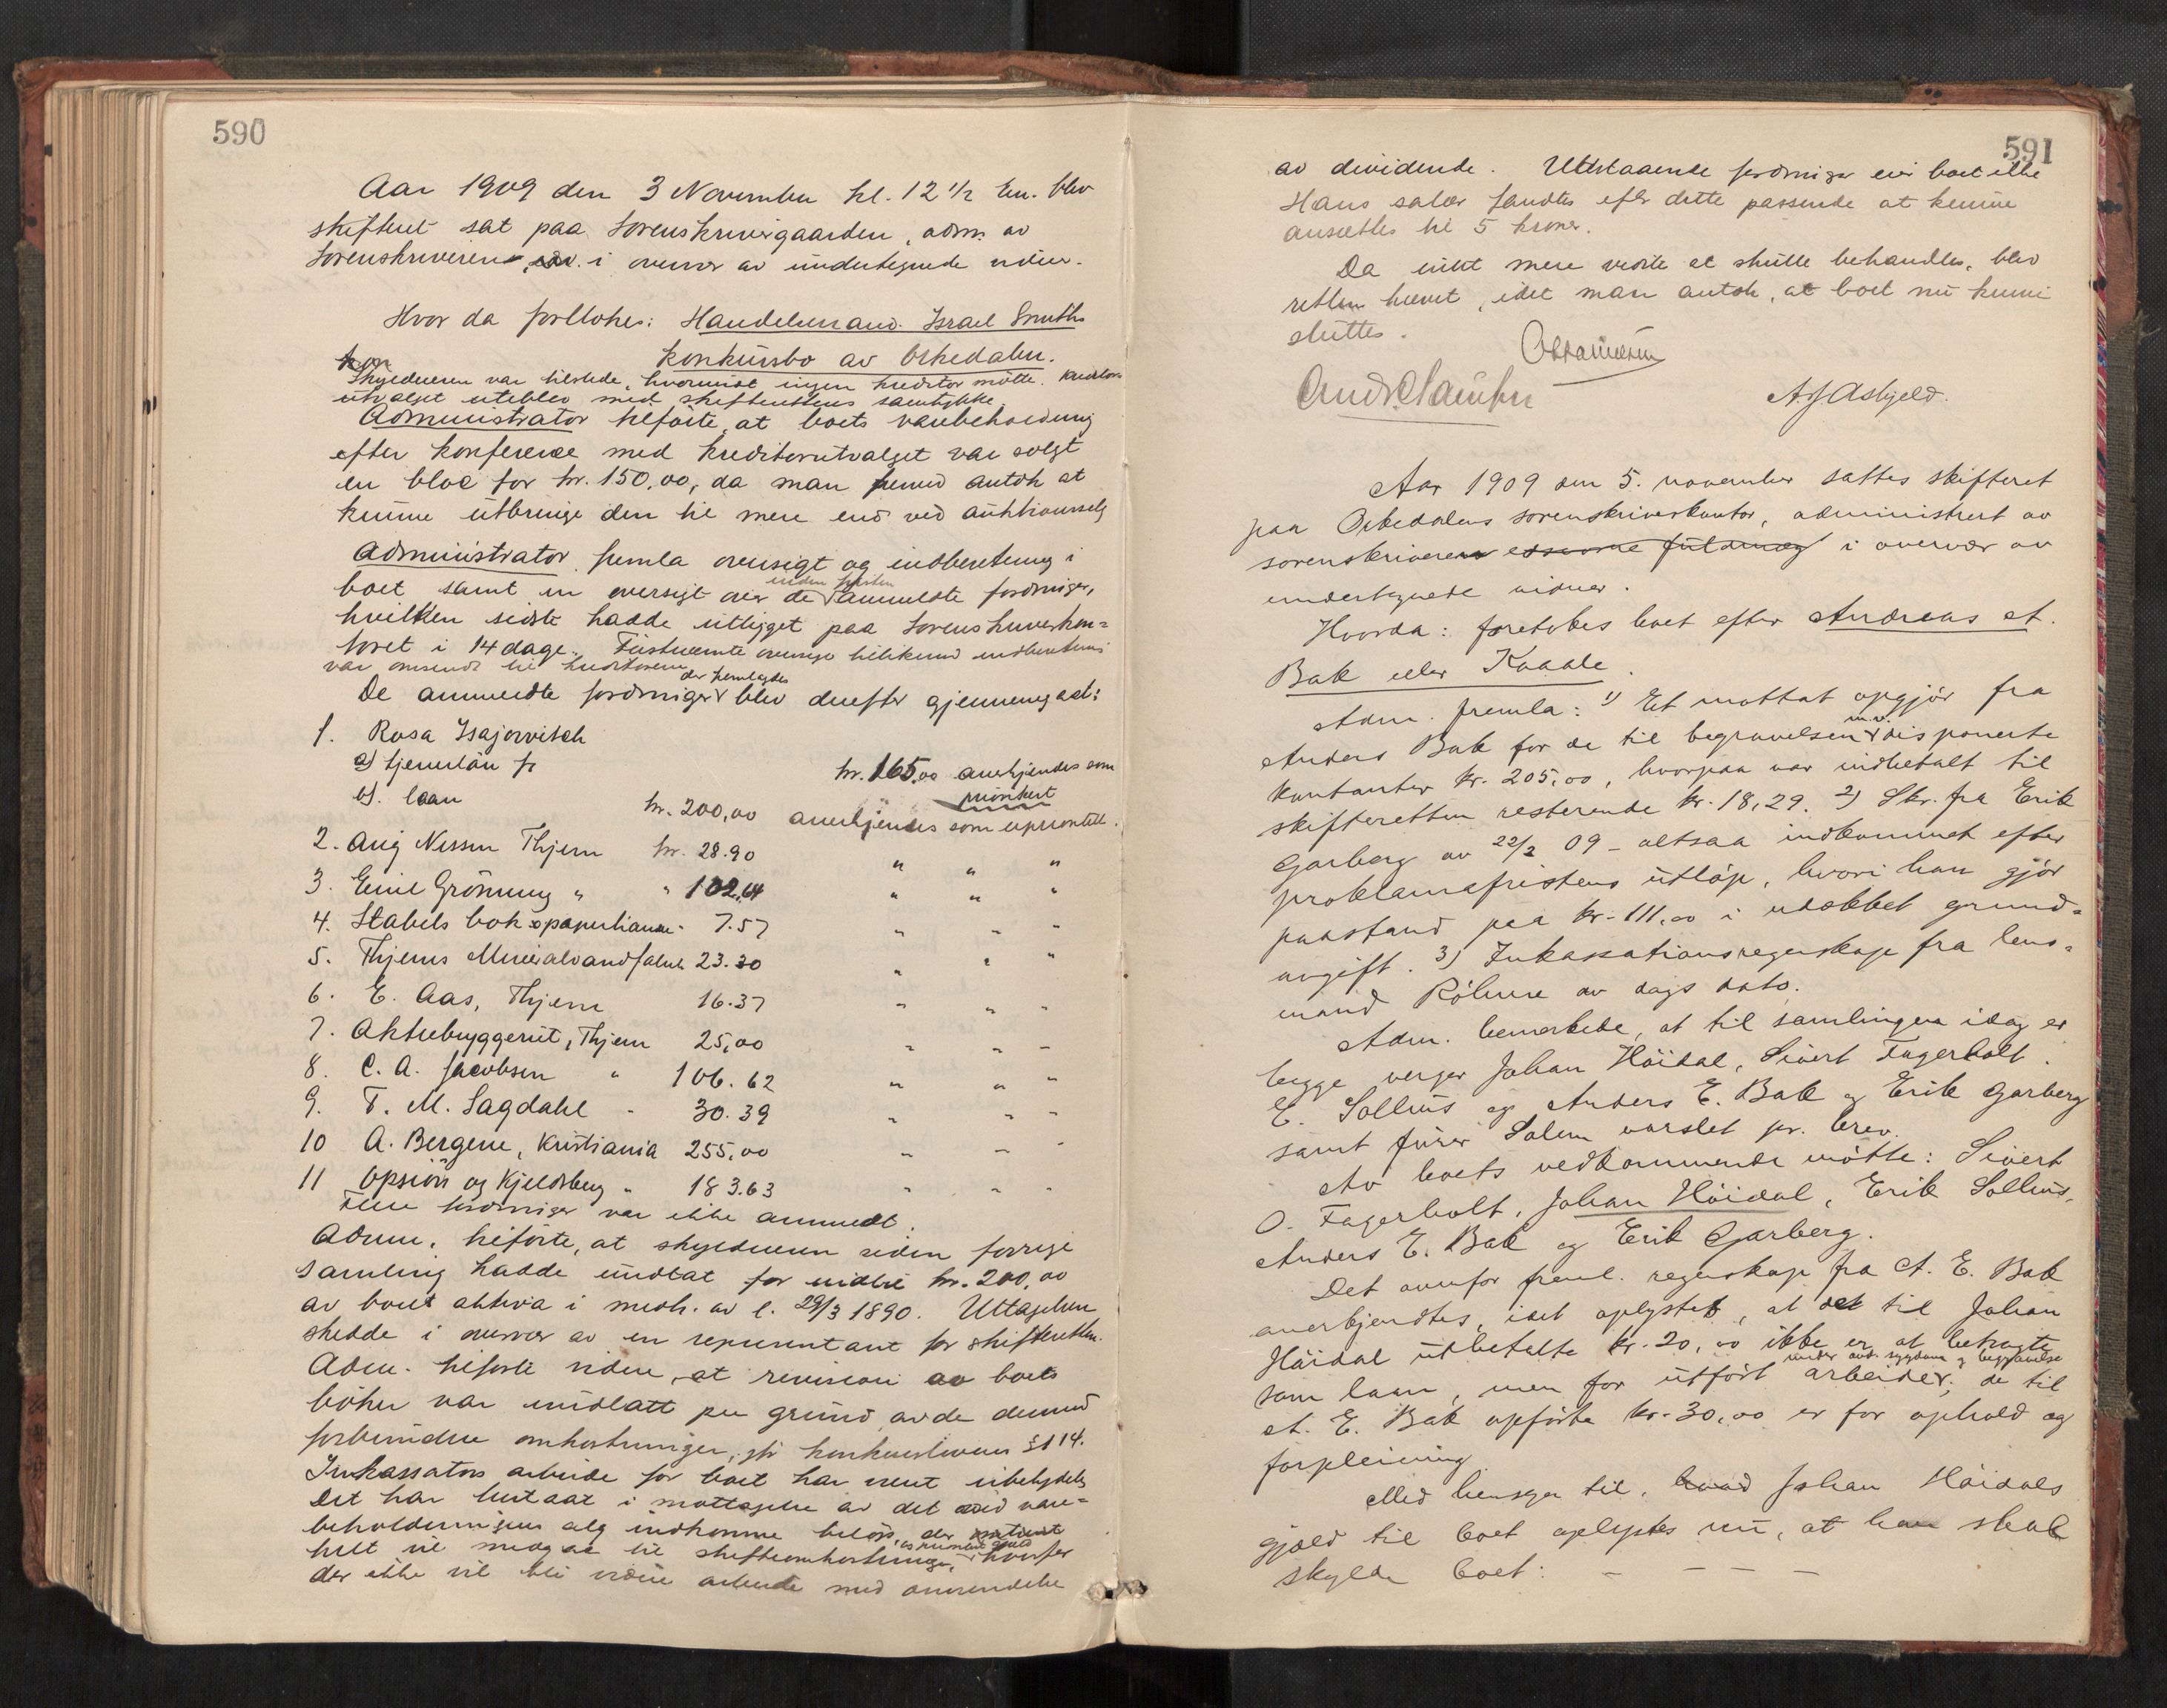 590
Aar 1909 den 3 November kl. 12 1/2 Em. blev
skifteret sat paa Sorenskrivergaarden, adm. av
Sorenskriveren i overvær av undertegnede vidner.
Hvor da foretokes: Handelsmand Israel Smuths
konkursbo av Orkedalen.
Skyldneren var tilstede, hvorimot ingen kreditor møtte. Kreditor-
utvalget uteblev med skifterettens samtykke.
Administrator tilførte, at boets varebeholdning
efter konferense med kreditorutvalget var solgt
en bloc for kr. 150,00, da man herved antok at
kunne utbringe den til mere end ved auktionssalg
Administrator fremla oversigt og indberetning i
boet samt en oversigt over de inden fristen anmeldte fordringer,
hvilken sidste hadde utligget paa Sorenskriverkon=
toret i 14 dage. Førstnævnte oversigt tillikemed indberetning
var omsendt til kreditorene
De anmeldte fordringer der fremlagdes blev derefter gjennemgaat:
1. Rosa Isajowitch
a) tjenerløn fr kr. 165,00 anerkjendes som
prioritert
b). laan kr. 200,00 anerkjendes som uprioritert.
2. Arig Nissen Thjem kr. 28.90 " " "
3. Emil Grønning " " 102,64 " " "
4. Stabels bok & papirhandel - 7.57 " " "
5. Thjems Mineralvandfabrik 23.30 " " "
6. E. Aas, Thjem 16.37 " " "
7. Aktiebryggeriet, Thjem 25,00 " " "
8. C. A. Jacobsen " 106.62 " " "
9. T. M. Sagdahl - 30.39 " " "
10 A. Bergene, Kristiania 255,00 " " "
11 Opsiøn og Kjeldsberg " 183.63 " " "
Flere fordringer var ikke anmeldt.
Adm. tilførte, at skyldneren siden forrige
samling hadde undtat for sig kr. 200,00
av boets aktiva i medh. av l. 29/3 1890. Uttagelsen
skedde i overvær av en representant for skifteretten.
Adm. tilførte videre, at revision av boets
bøker var undlatt paa grund av de dermed
forbundne omkostninger, jfr konkurslovens § 114.
Inkassators arbeide for boet har været ubetydelig
Det har bestaaet i mottagelse av det ved vare=
beholdningens salg indkomne beløp, der
helt vil medgaa til skifteomkostninger, hvorfor
der ikke vil bli videre arbeide med anvendelse
591
av dividende. Utestaaende fordringer eier boet ikke
Hans salær fandtes efter dette passende at kunne
ansættes til 5 kroner.
Da intet mere vidste at skulle behandles, blev
retten hævet, idet man antok, at boet nu kunne
sluttes.
A. J. Asbjeld.
Aar 1909 den 5. november sattes skifteret
paa Orkedalens sorenskriverkontor, administrert av
sorenskriveren edsvorne fuldmæg i overvær av
undertegnede vidner.
Hvorda: foretokes boet efter Andreas A.
Bak eller Kaale.
Adm. fremla: 1) Et mottat opgjør fra
Anders Bak for de til begravelsen m.v. disponerte
kontanter kr. 205,00, hvorpaa var indbetalt til
skifteretten resterende kr. 18,29. 2) Skr. fra Erik
Garberg av 22/2 09 - altsaa indkommet efter
proklamafristens utløp, hvori han gjør
paastand paa kr. 111,00 i uvekket grund=
avgift. 3) Inkassationsregnskap fra lens=
mand Rølvnn av dags dato.
Adm. bemerkede, at til samlingen idag er
begge verger Johan Høidal, Sivert Fagerholt.
E. Sollius og Anders E. Bak og Erik Garberg
samt fører Solem varslet pr. brev.
Av boets vedkommende møtte: Sivert
O. Fagerholt, Johan Høidal, Erik Sollius,
Anders E. Bak og Erik Garberg.
Det ovenfor freml. regnskap fra A. E. Bak
anerkjendtes, idet oplystes, at det til Johan
Høidal utbetalte kr. 20,00 ikke er at betragte
som laan, men for utført arbeider under avd. sygdom og begravelse; de til
A. E. Bak opførte kr. 30,00 er for ophold og
forpleining
Med hensyn til, hvad Johan Høidals
gjæld til boet oplystes nu, at han skal
skylde boet: - - - -